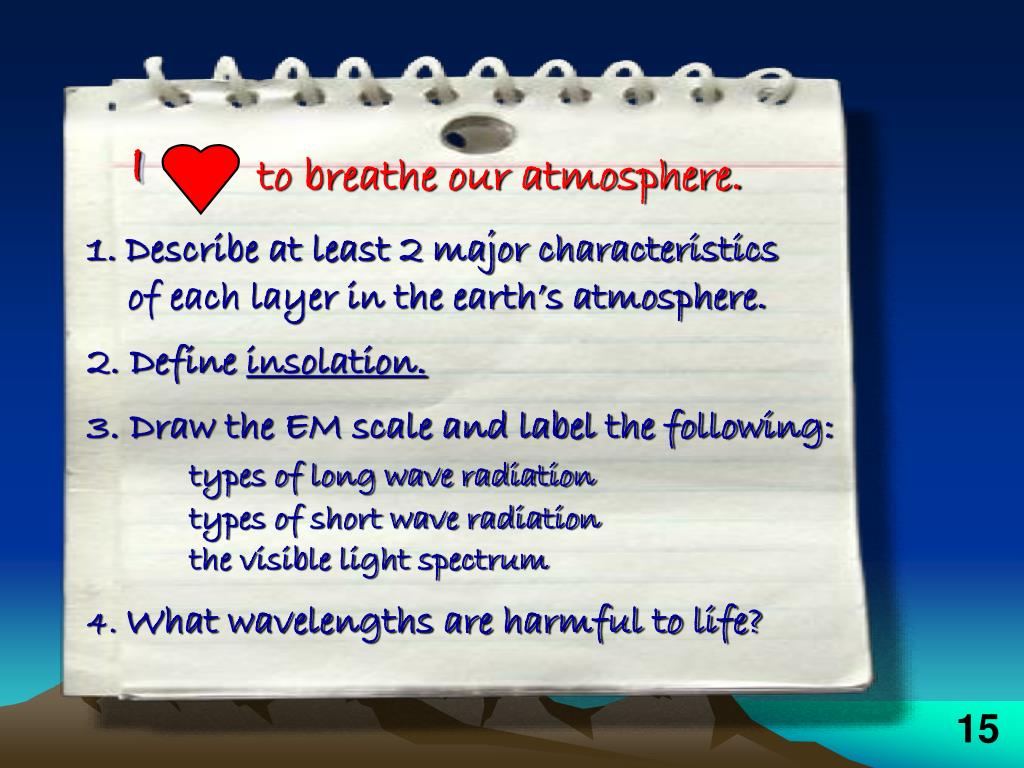 I to breathe our atmosphere.
1. Describe at least 2 major characteristics
of each layer in the earth's atmosphere.
2. Define insolation.
3. Draw the EM scale and label the following:
types of long wave radiation
types of short wave radiation
the visible light spectrum
4. What wavelengths are harmful to life?
15